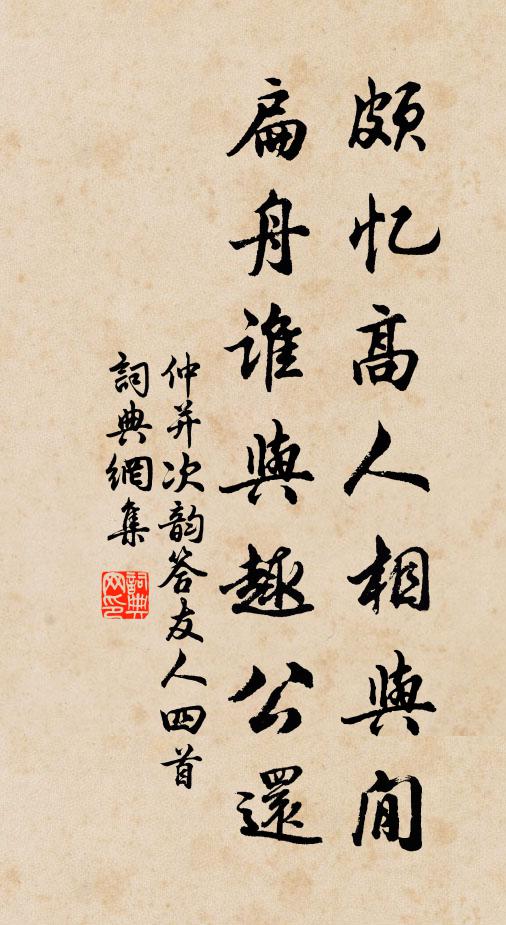 頗忆高人相與閒
扁舟谁與趣公還
仲并次韵答友人四首
詞典網集
詞典网印